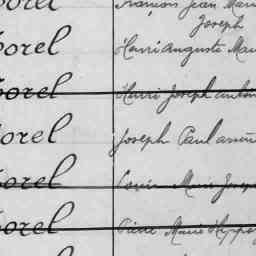 orel François Jean Marie
Joseph
orel Henri Auguste Mari
orel Henri Joseph
orel Joseph Paul
orel Louis Marie Joseph
orel Pierre Marie Hyppo